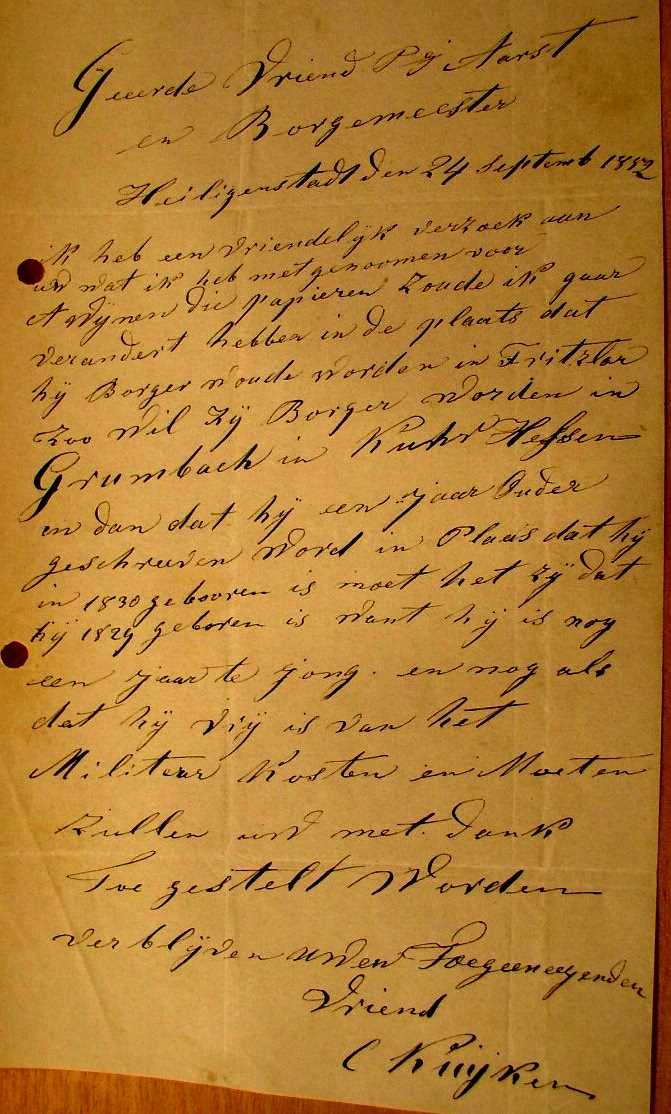 Geeerde Vriend Pj Aarst
en Borgemeester
Heiligenstadt den 24 septemb 1852
ik heb een vriendelijk verzoek aan
uw wat ik heb metgenoomen voor
A Wijnen die papieren Zoude ik gaar
verandert hebben in de plaats dat
hij Borger woude worden in Fritzlar
Zoo wil hij Borger worden in
Grumbach in Kuhr Hessen
en dan dat hij een jaar Ouder
geschreeven word in Plaas dat hij
in 1830 gebooren is moet het zij dat
hij 1829 geboren is want hij is nog
een jaar te jong. en nog als
dat hij vrij is van het
Militear Kosten en Moeten
zullen uw met dank
Toe gestelt Worden
verblijven uwen Toegeneegenden
Vriend
C Kuijken